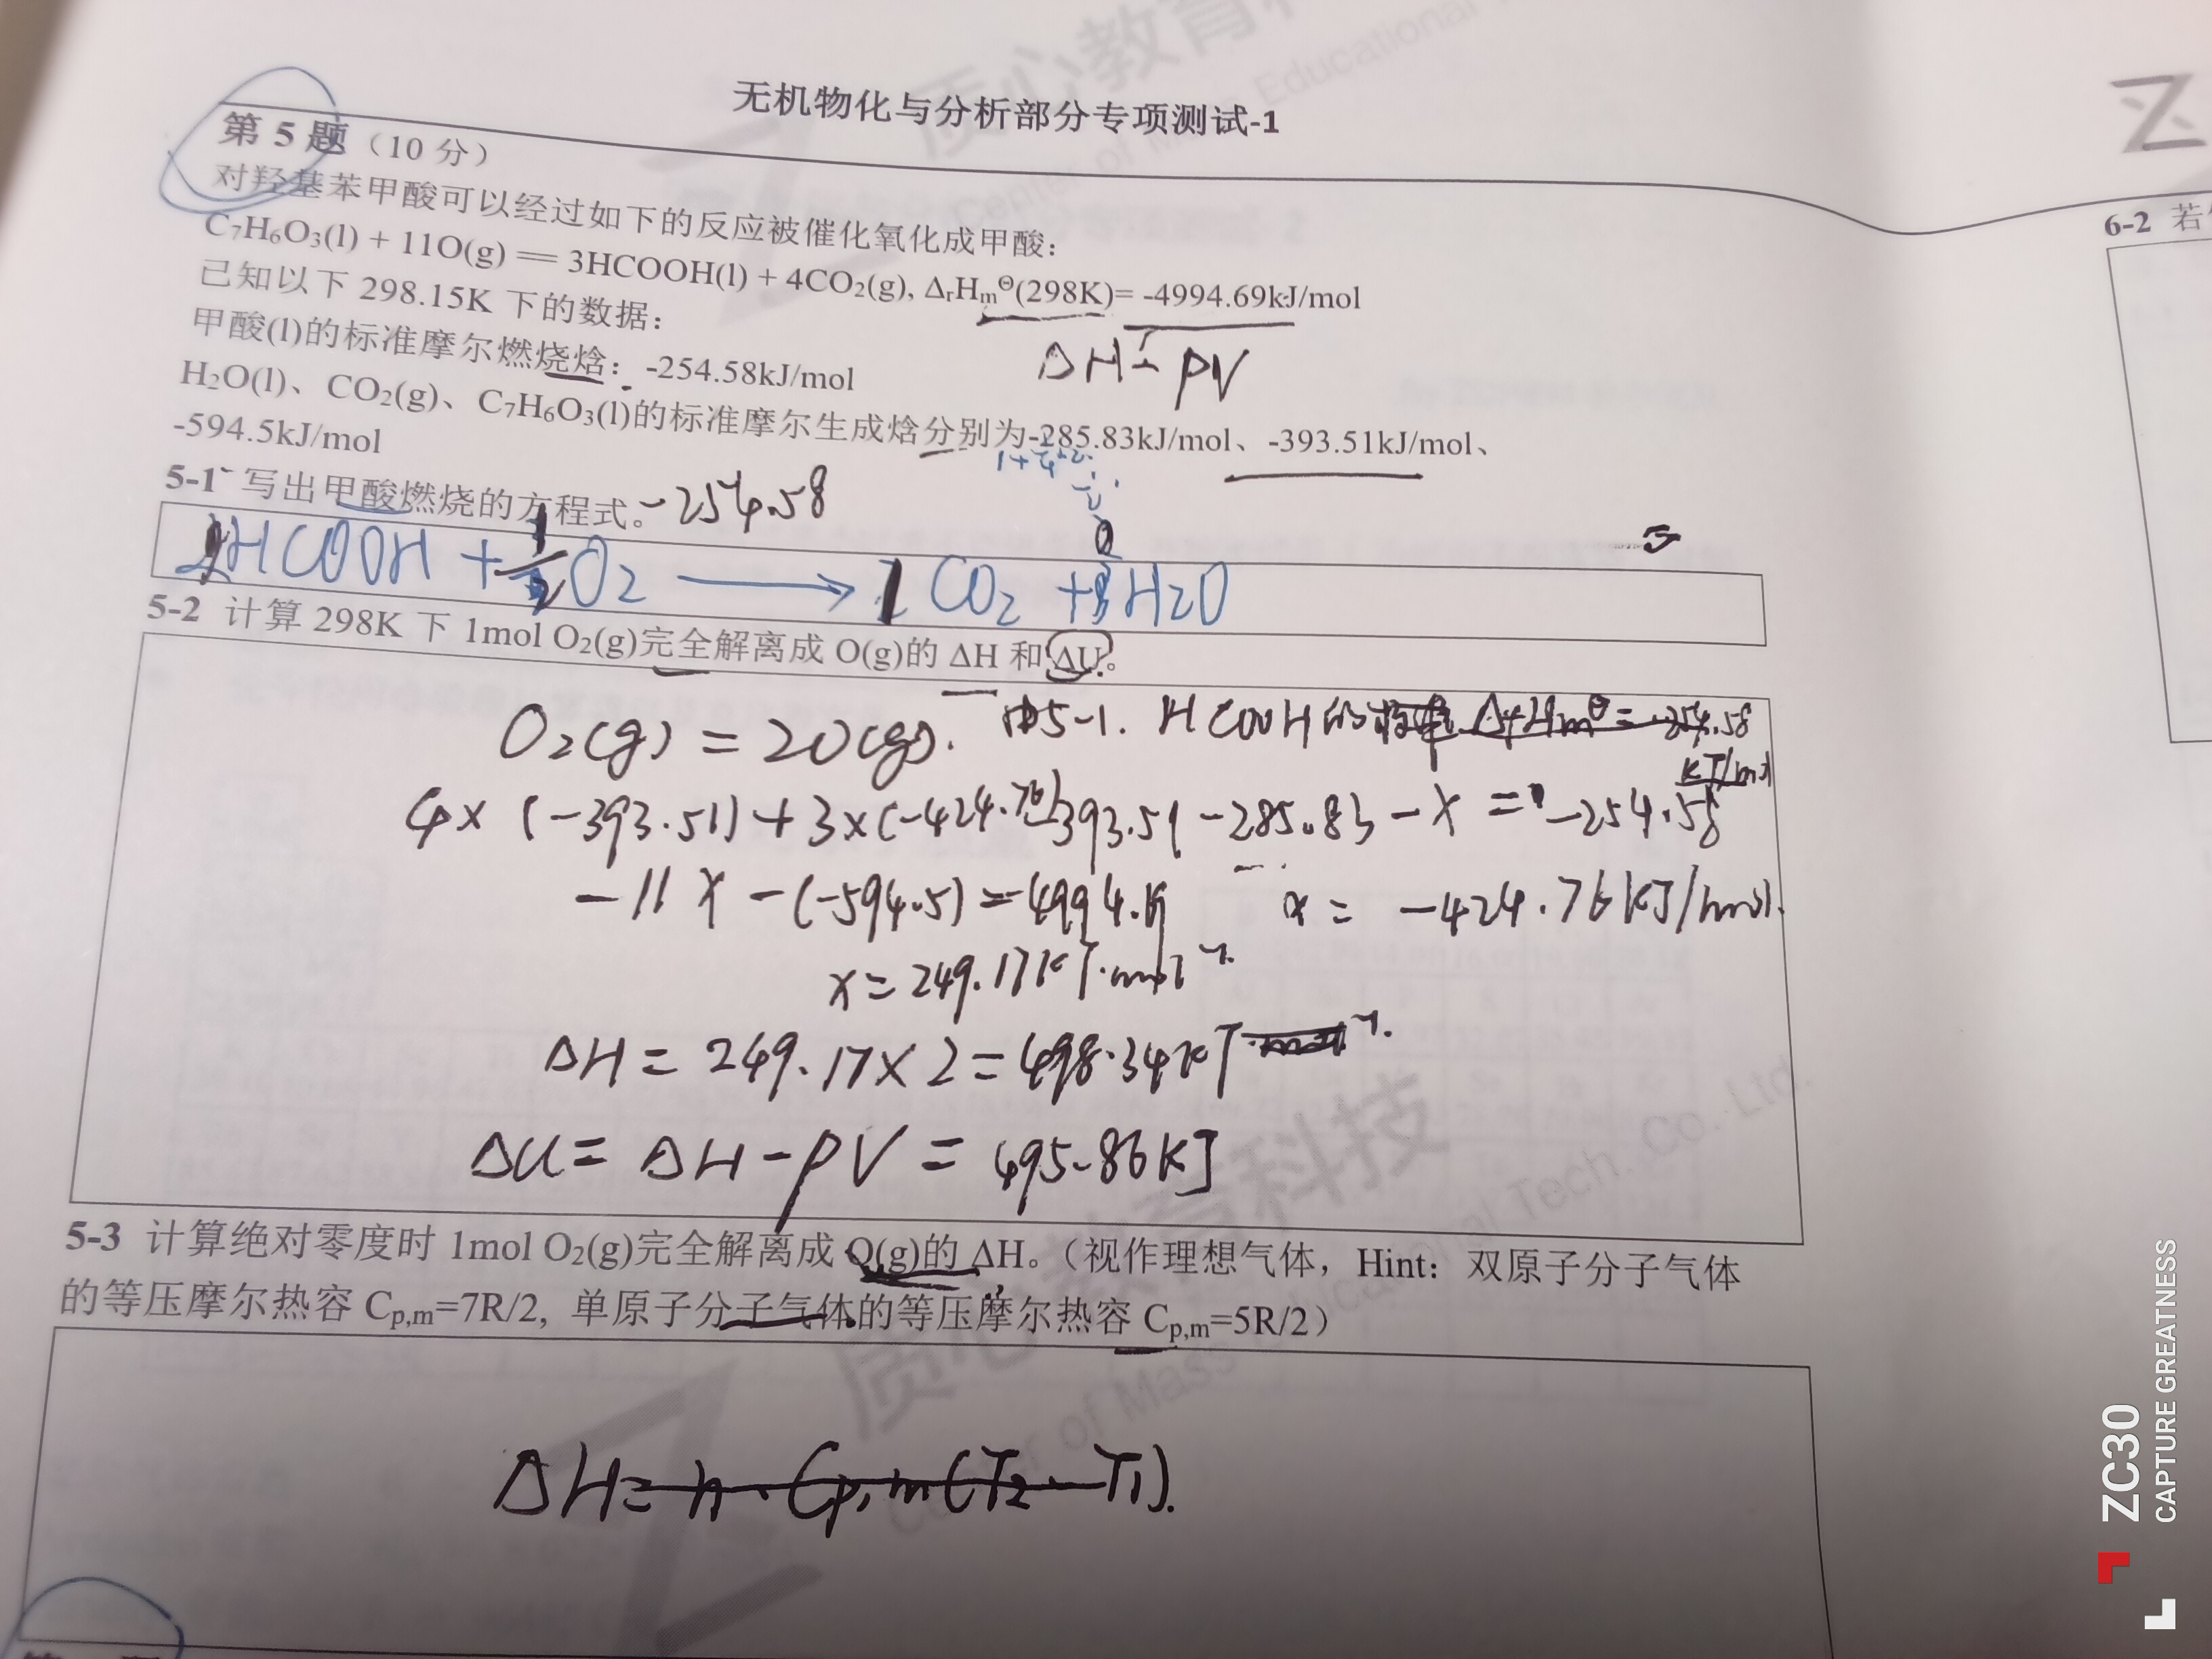 无机物化与分析部分专项测试-1
第 5 题（10 分）
对羟基苯甲酸可以经过如下的反应被催化氧化成甲酸：
C₇H₆O₃(l) + 11O(g) == 3HCOOH(l) + 4CO₂(g), ΔᵣHₘ^Θ(298K)= -4994.69kJ/mol
已知以下 298.15K 下的数据：
甲酸(l)的标准摩尔燃烧焓：-254.58kJ/mol
ΔH - PV
H₂O(l)、CO₂(g)、C₇H₆O₃(l)的标准摩尔生成焓分别为-285.83kJ/mol、-393.51kJ/mol、
-594.5kJ/mol
5-1 写出甲酸燃烧的方程式。
-254.58
HCOOH + 1/2 O₂ → 1 CO₂ + H₂O
5-2 计算 298K 下 1mol O₂(g)完全解离成 O(g)的 ΔH 和 ΔU。
O₂(g) = 2O(g).
由5-1. HCOOH的标准 ΔfHm^θ = -254.58 kJ/mol
4×(-393.51)+3×(-424.76)
-393.51-285.83-x = -254.58
-11x-(-594.5)=-4994.69
x = -424.76kJ/mol.
x=249.17kJ·mol⁻¹.
ΔH = 249.17×2=498.34kJ
ΔU= ΔH-PV = 495.86kJ
5-3 计算绝对零度时 1mol O₂(g)完全解离成 O(g)的 ΔH。（视作理想气体，Hint：双原子分子气体
的等压摩尔热容 Cp,m=7R/2, 单原子分子气体的等压摩尔热容 Cp,m=5R/2）
ΔH=n·Cp,m(T₂-T₁).
6-2 若
质心教育科技
Center of Mass Educational Tech. Co. Ltd.
ZC30
CAPTURE GREATNESS